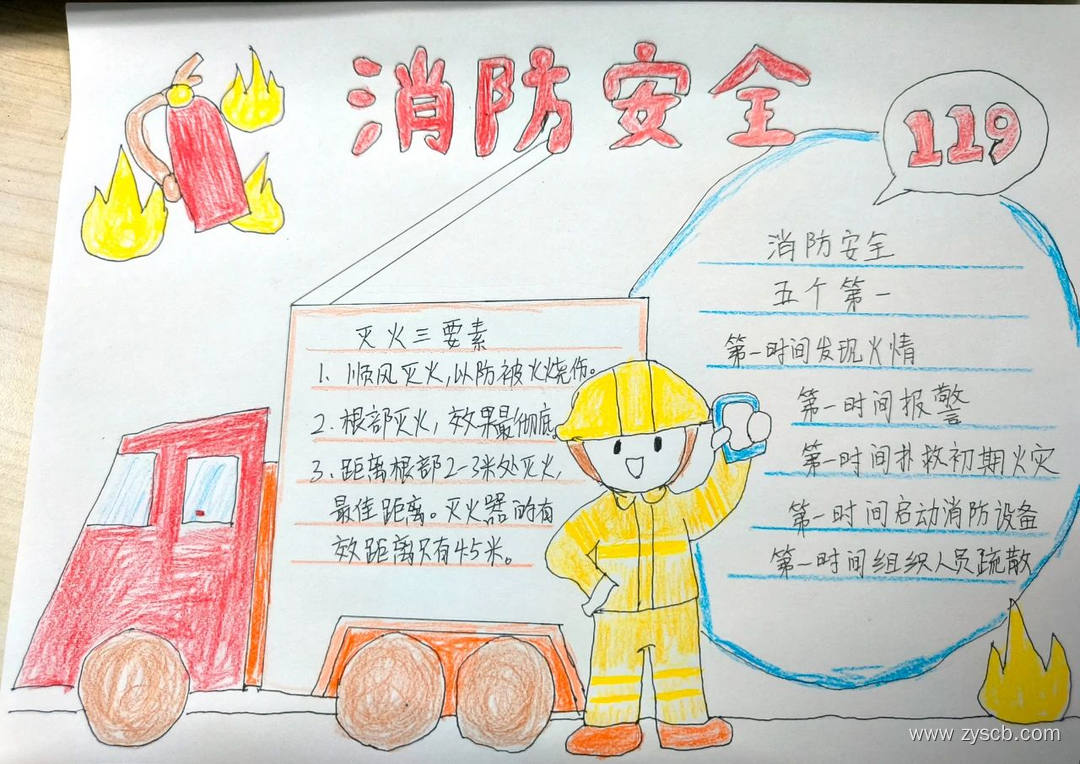 消防安全
119
灭火三要素
1、顺风灭火,以防被火烧伤。
2、根部灭火,效果最彻底。
3、距离根部2-3米处灭火,
最佳距离。灭火器的有
效距离只有45米。
消防安全
五个第一
第一时间发现火情
第一时间报警
第一时间扑救初期火灾
第一时间启动消防设备
第一时间组织人员疏散
www.zyscb.com